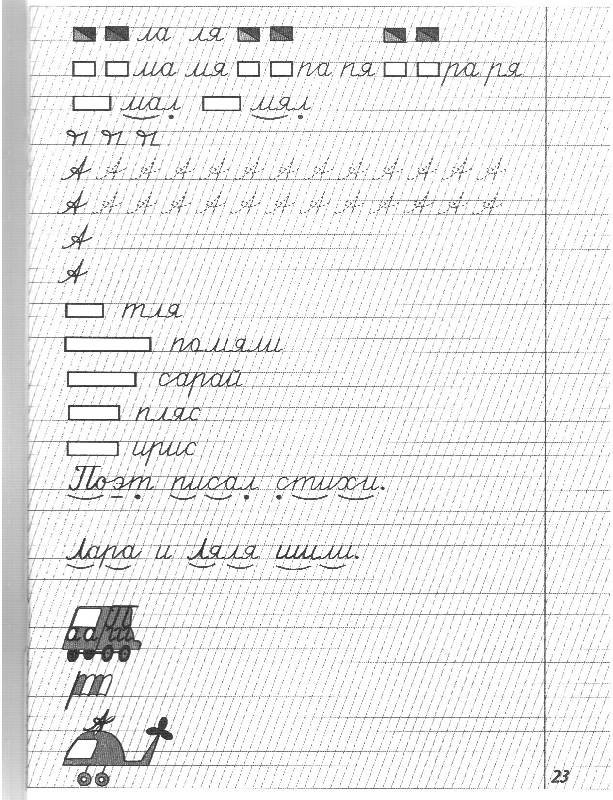 ла ля
ма мя па пя ра ря
мал мял
А А А А А А А А А А А А А
А А А А А А А А А А А А А
А
А
тля
помяли
сарай
пляс
ирис
Поэт писал стихи.
Лара и Ляля шили.
А
23